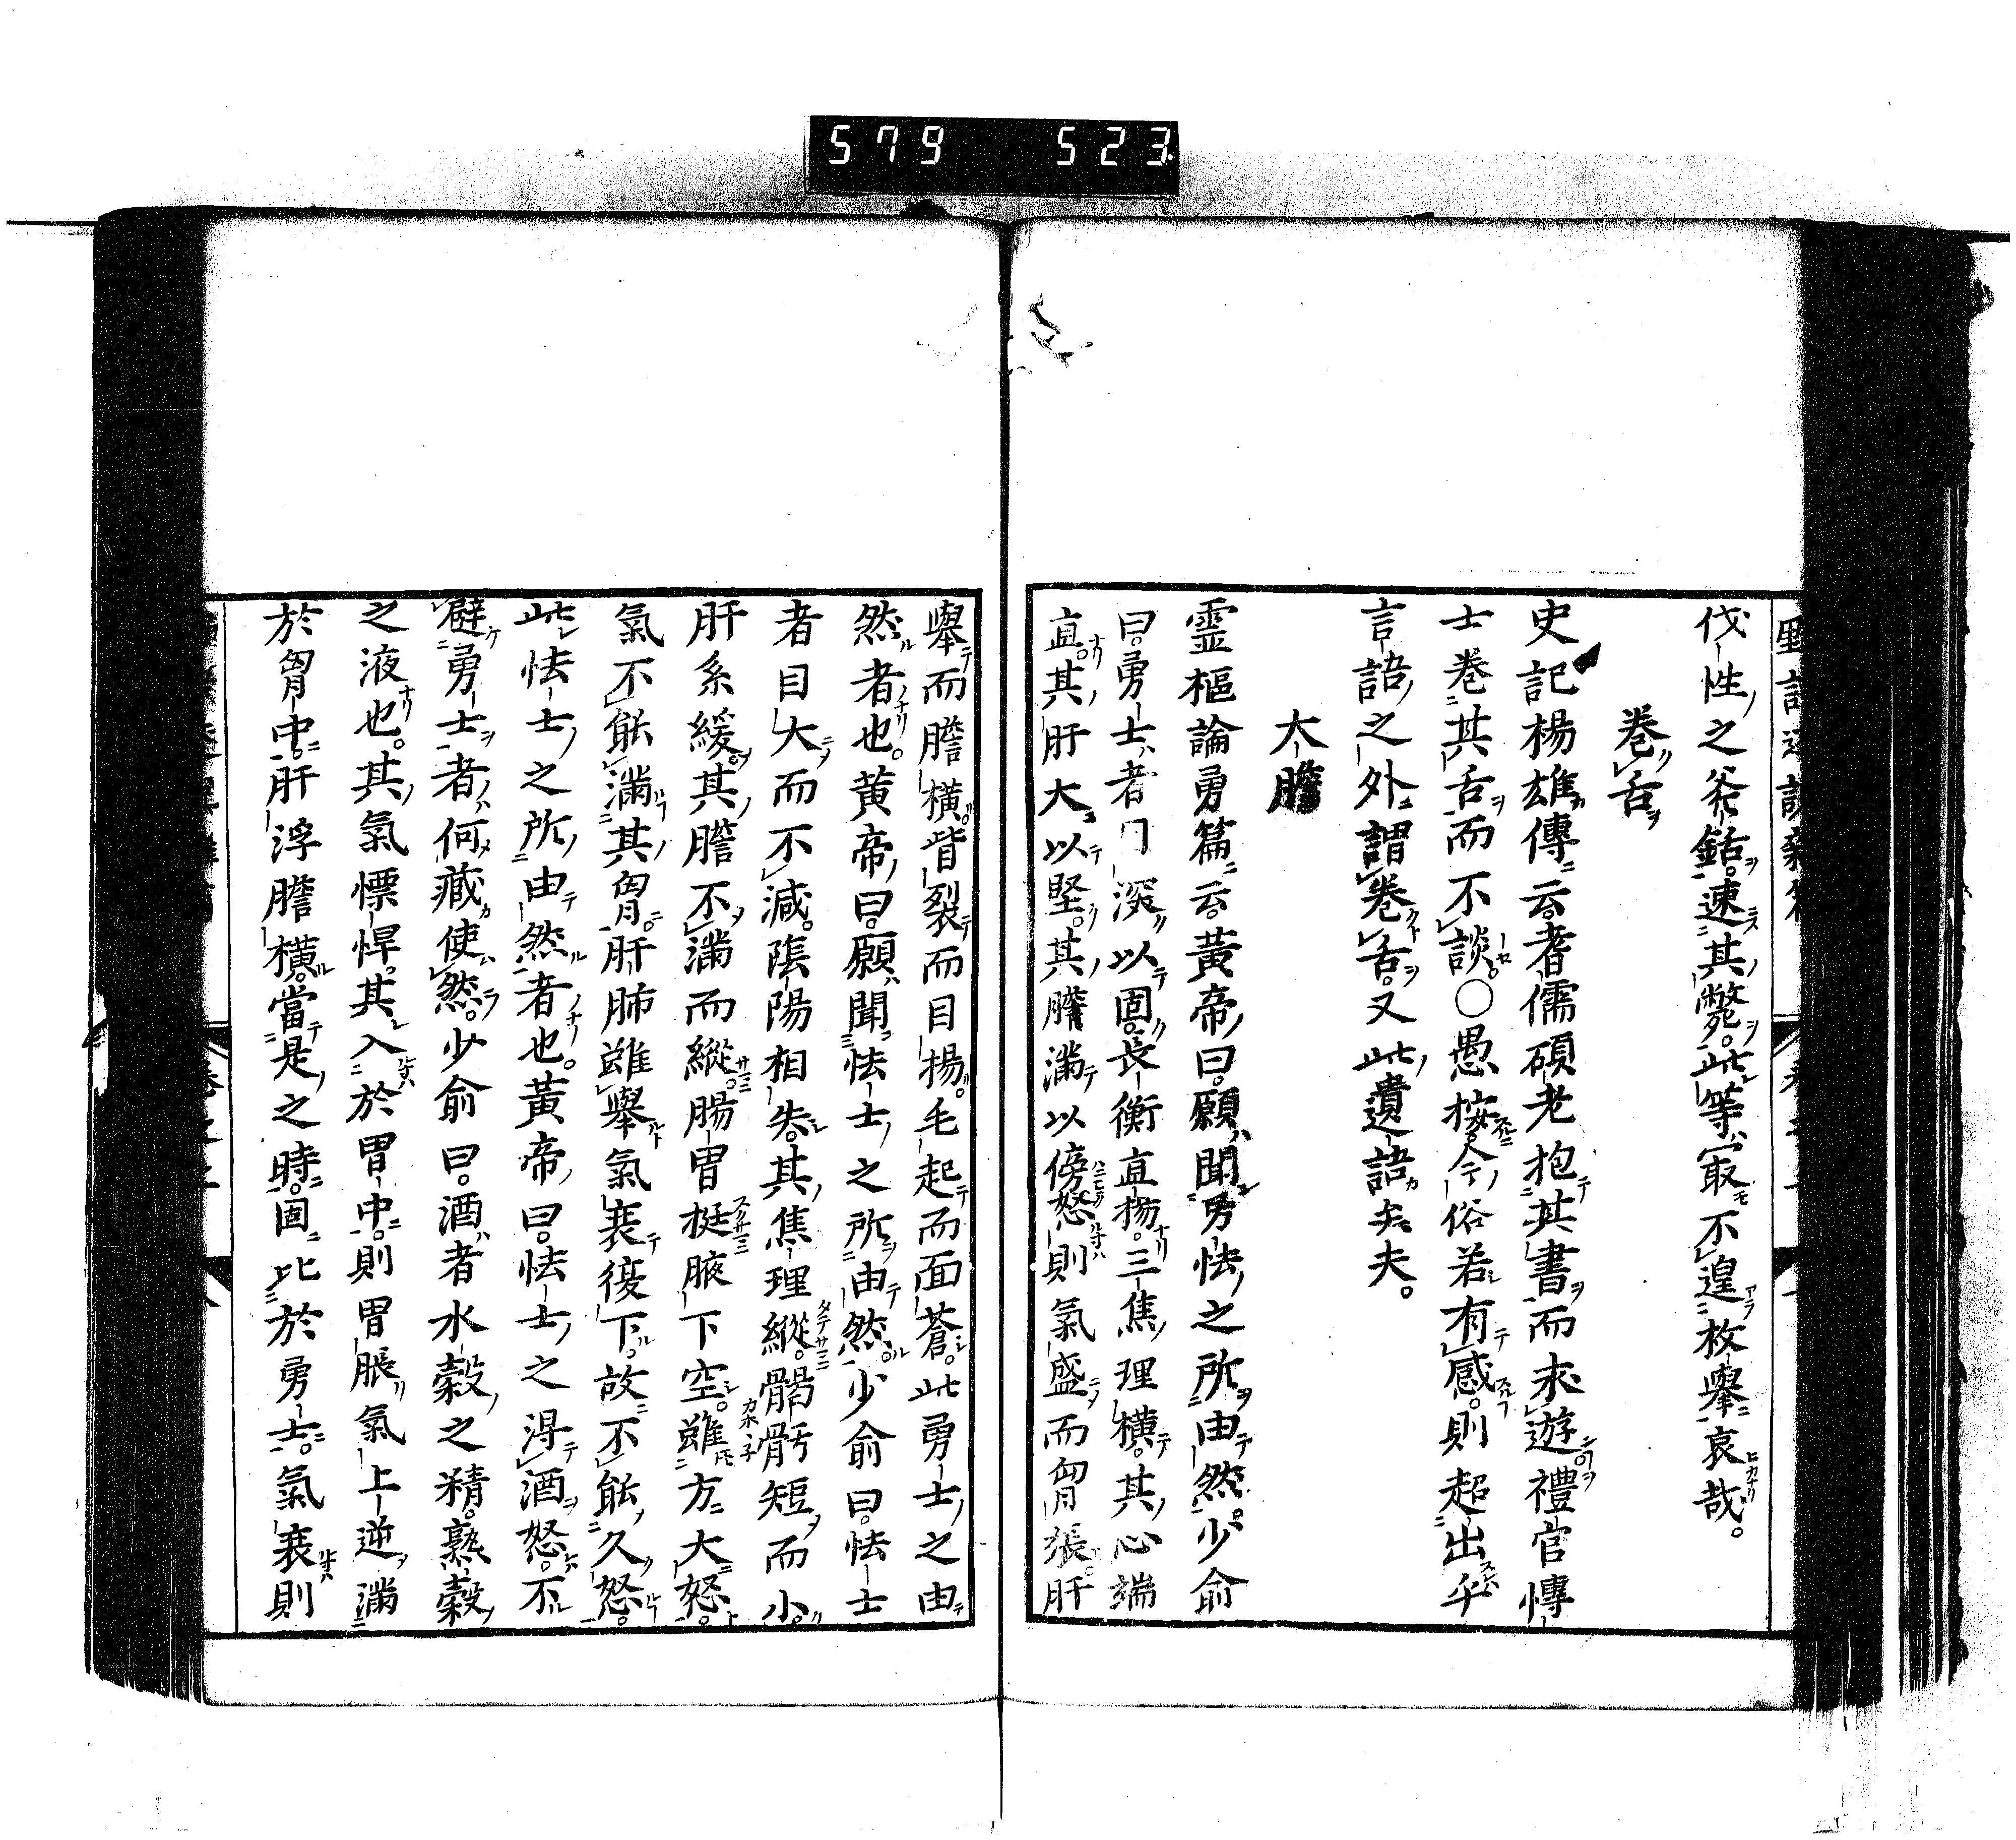 579 523
伐性之斧鉐。速其斃。此等寂不遑枚舉。哀哉。
卷舌
史記楊雄傳云。耆儒碩老抱其書而求遊禮官愽
士卷其舌而不談。○愚按。今俗若有感。則超出乎
言語之外謂卷舌。又此遺語矣夫。
大膽
靈樞論勇篇云。黃帝曰。願聞勇怯之所由然。少俞
曰。勇士者目深以固。長衡直揚。三焦理橫。其心端
直。其肝大以堅。其膽滿以傍。怒則氣盛而胷張。肝
舉而膽橫。眥裂而目揚。毛起而面蒼。此勇士之由
然者也。黃帝曰。願聞怯士之所由然。少俞曰。怯士
者目大而不減。陰陽相失。其焦理縱。𩩲骬短而小。
肝系緩。其膽不滿而縱。腸胃挺腋下空。雖方大怒。
氣不能滿其胷。肝肺雖舉氣衰復下。故不能久怒。
此怯士之所由然者也。黃帝曰。怯士之得酒怒。不
避勇士者。何藏使然。少俞曰。酒者水穀之精。熟穀
之液也。其氣慓悍。其入於胃中。則胃脹氣上逆滿
於胷中。肝浮膽橫。當是之時。固比於勇士。氣衰則